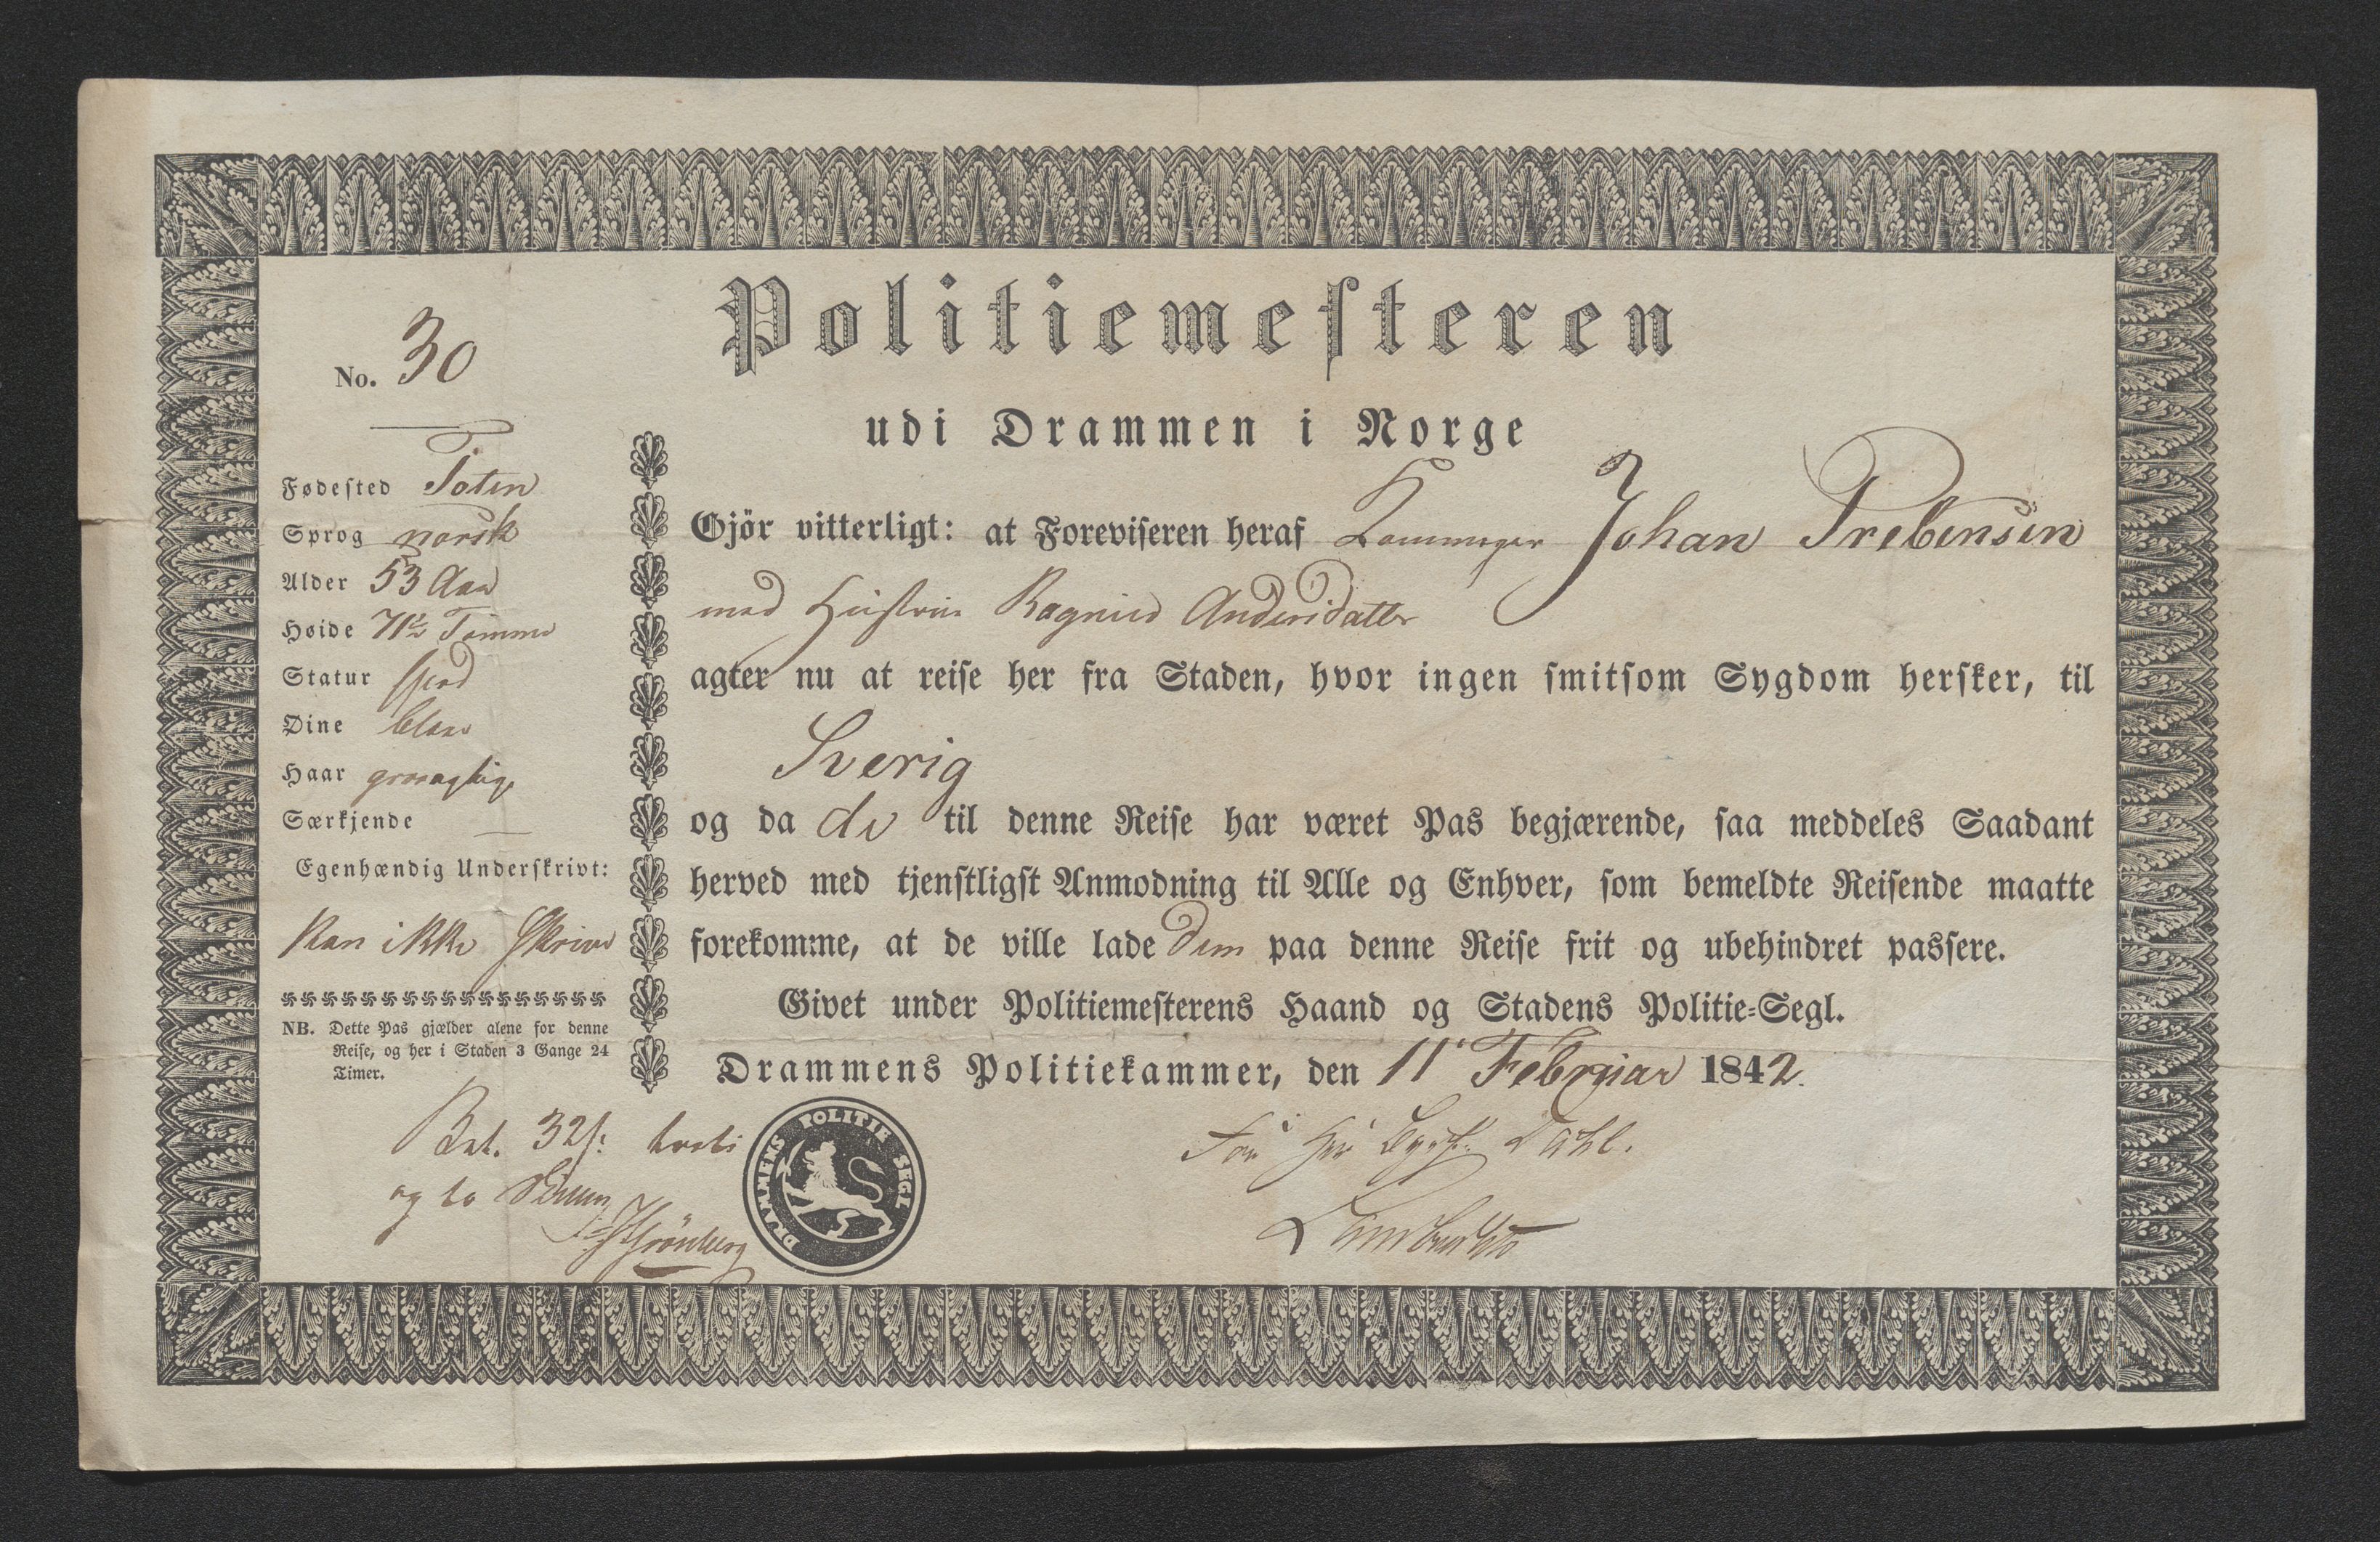 No. 30
Fødested Toten
Sprog norsk
Alder 53 Aar
Høide 71½ Tomme
Statur
Øine blaae
Haar graaagtig
Særkjende —
Egenhændig Underskrivt:
Kan ikke Skrive
NB. Dette Pas gjælder alene for denne
Reise, og her i Staden 3 Gange 24
Timer.
Bet. 32 s: treti
og to
Politiemesteren
udi Drammen i Norge
Gjör vitterligt: at Foreviseren heraf Johan Prebensen
med Hustrue Ragnild Andersdatter
agter nu at reise her fra Staden, hvor ingen smitsom Sygdom hersker, til
Sverig
og da de til denne Reise har været Pas begjærende, saa meddeles Saadant
herved med tjenstligst Anmodning til Alle og Enhver, som bemeldte Reisende maatte
forekomme, at de ville lade dem paa denne Reise frit og ubehindret passere.
Givet under Politiemesterens Haand og Stadens Politie=Segl.
Drammens Politiekammer, den 11 Februar 1842.
DRAMMENS POLITIE SEGL
For Hr Dahl.